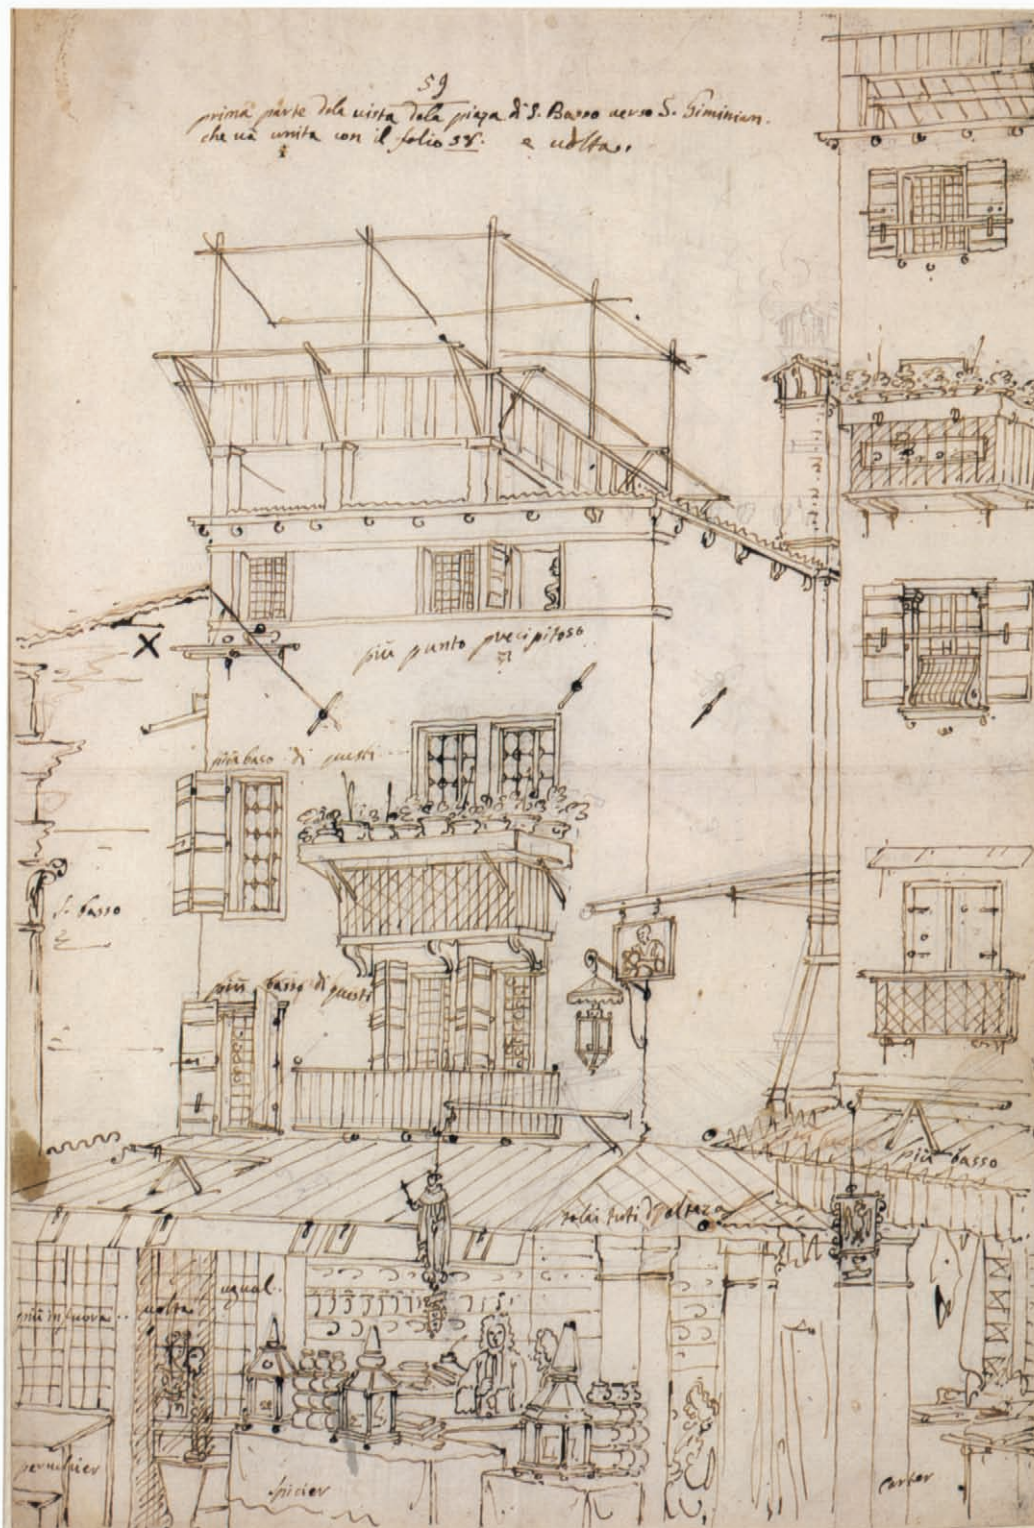 59
prima parte dela vista dela piaza di S. Basso verso S. Giminian.
che va unita con il folio 58. e volta.
più punto precipitoso
più baso di questi
S. Basso
più basso di questi
più basso
tuti
ugual.
più in fuora
volta
peruchier
spicier
carter